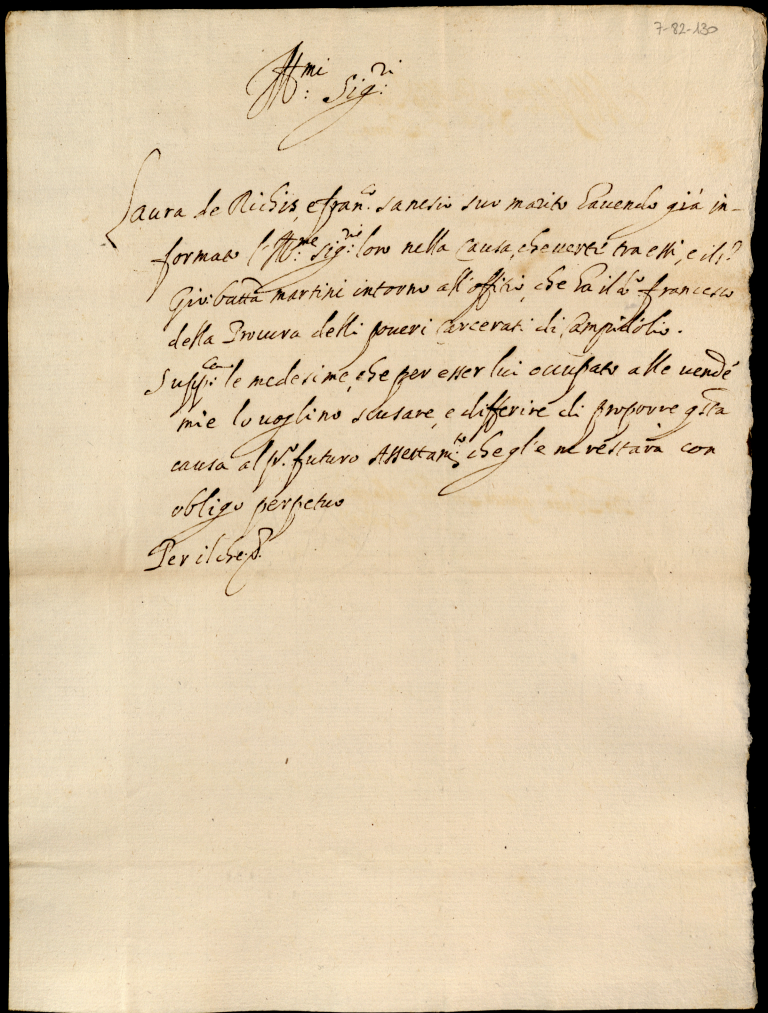 7-82-130
Ill:mi Sig:ri
Laura de Richis, e fran:co sanesio suo marito havendo già in-
formato l'Ill:me Sig:rie loro nella causa, che verte tra essi, e il s:r
Gio: batta martini intorno all'offitio, che ha il d:o francesco
della Procura delli poveri carcerati di Campidolio.
Supp:can le medesime, che per esser lui occupato alle vende
mie lo voglino scusare, e differire di proporre q:sta
causa al pr:o futuro Assettam:to che gl'e ne restarà con
obligo perpetuo
Per il che &.